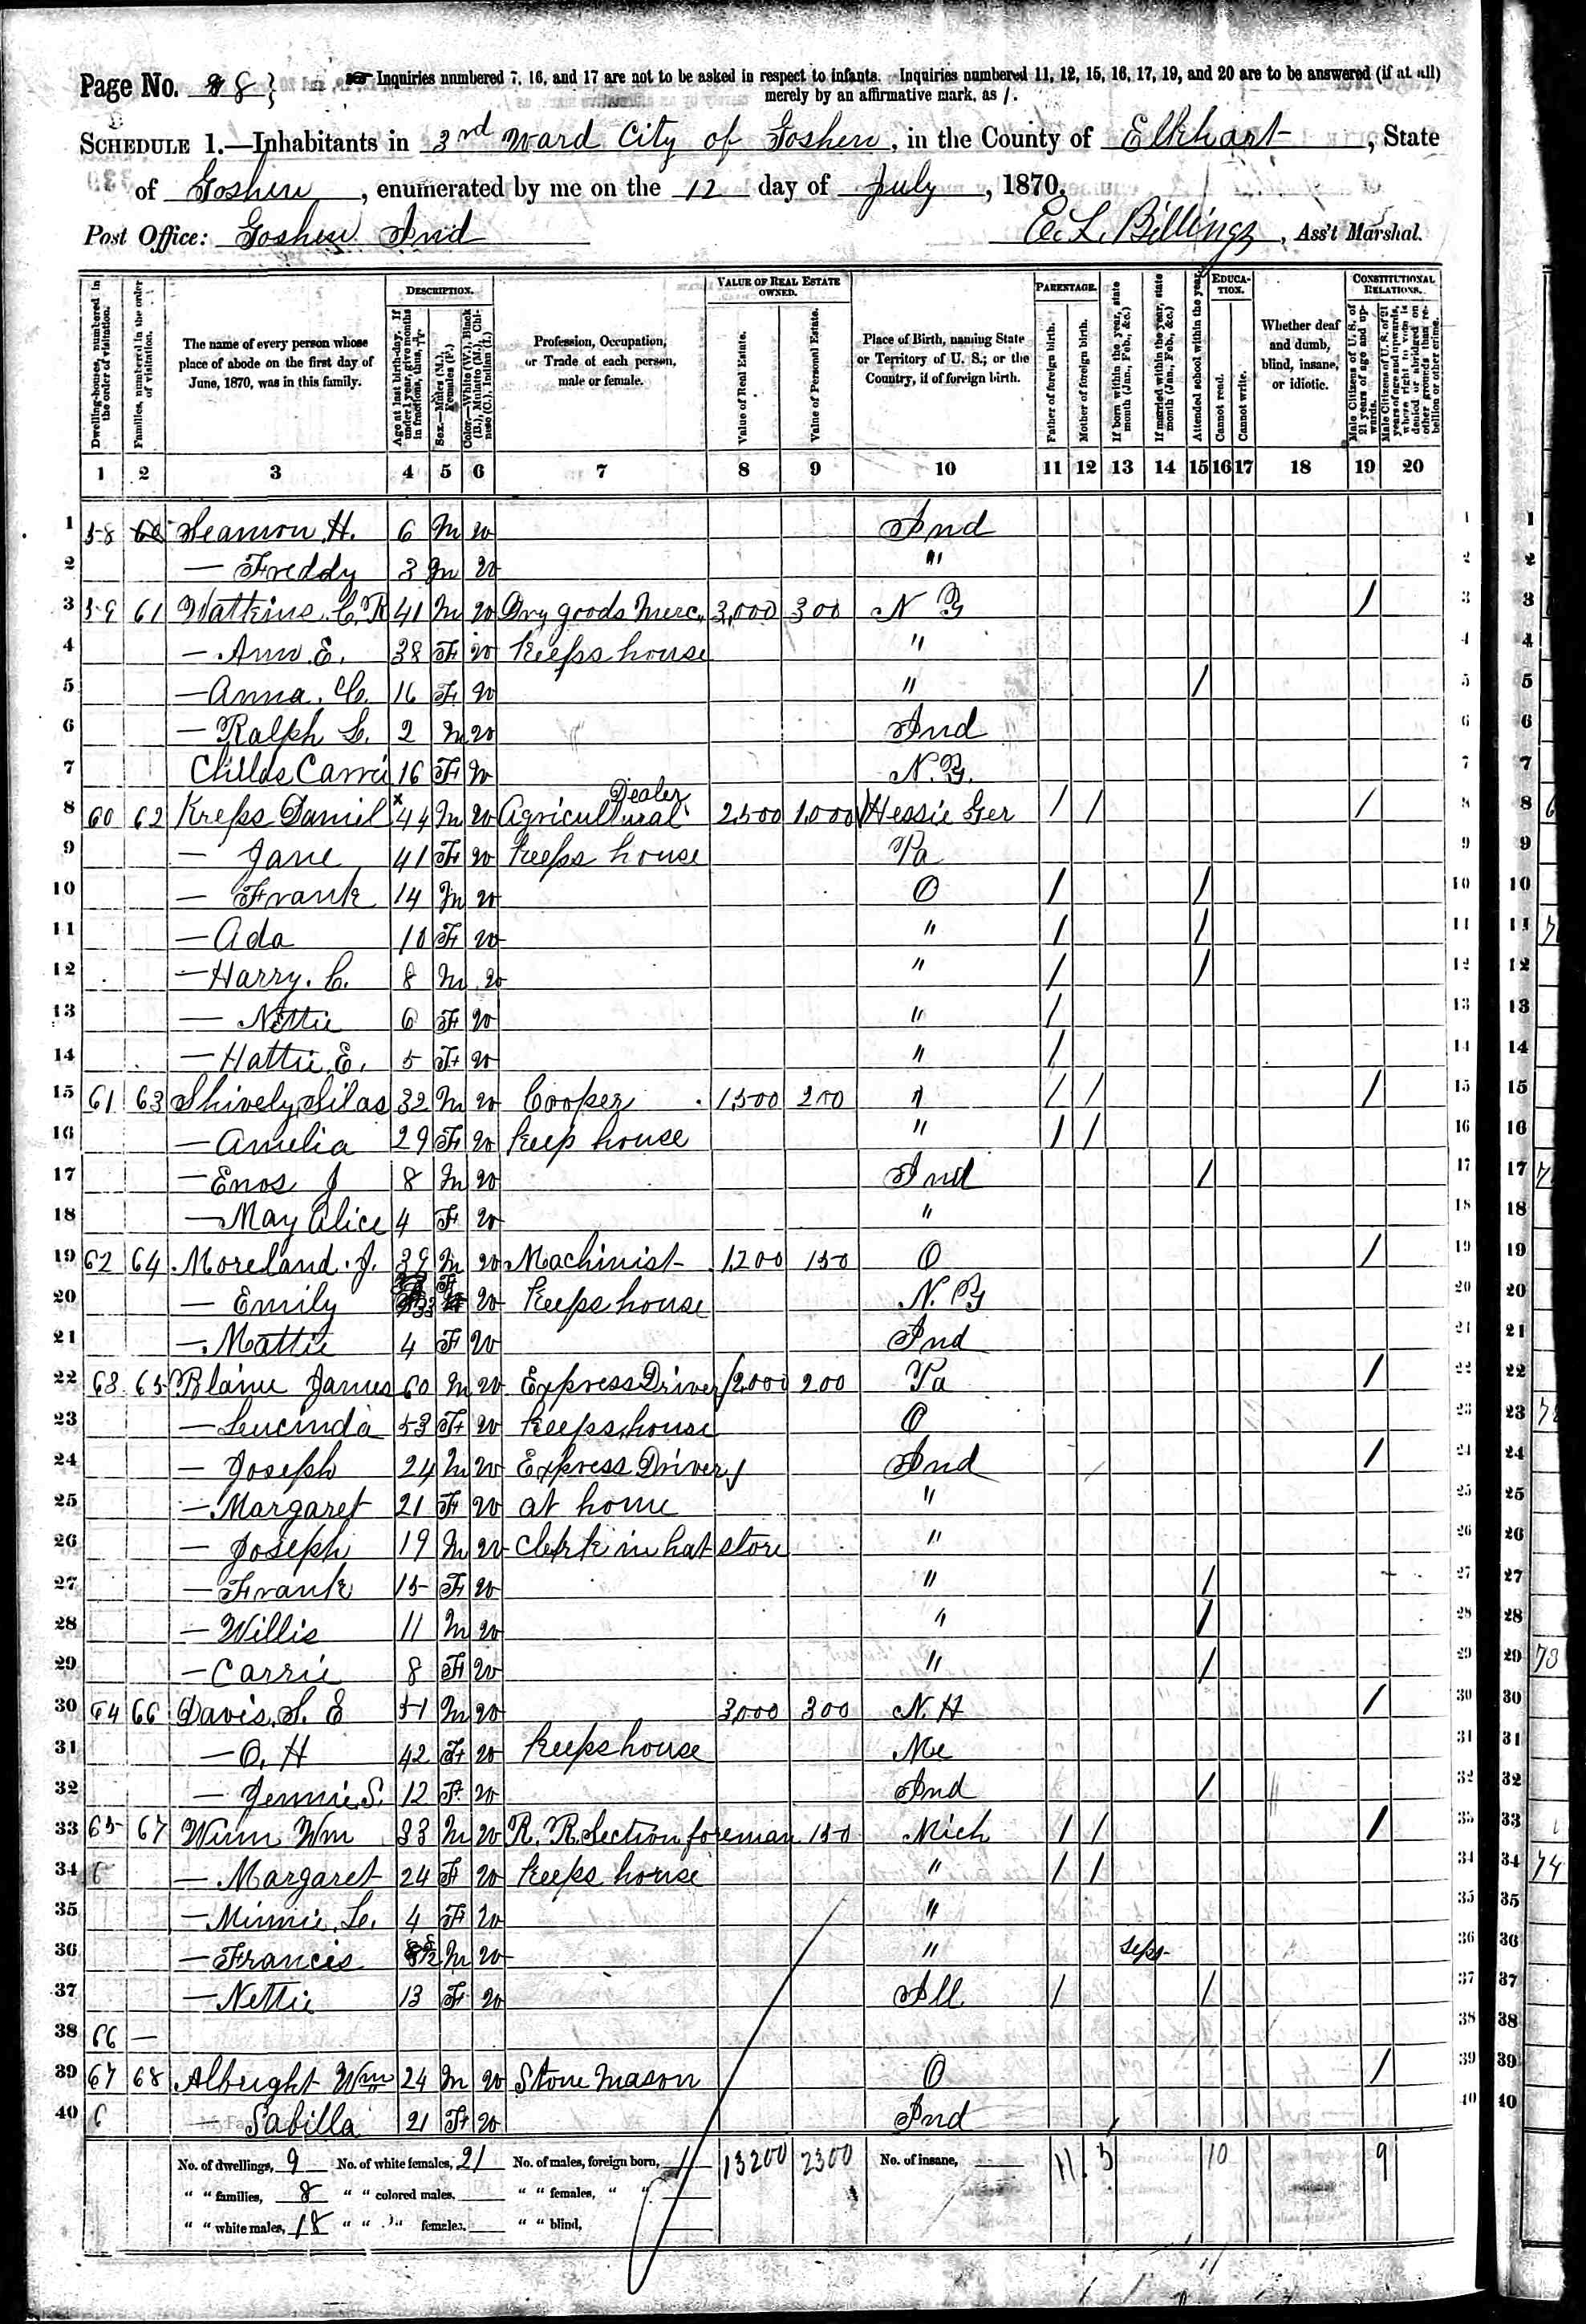 Page No. 8 } Inquiries numbered 7, 16, and 17 are not to be asked in respect to infants. Inquiries numbered 11, 12, 15, 16, 17, 19, and 20 are to be answered (if at all)
merely by an affirmative mark, as /.
SCHEDULE 1.—Inhabitants in 3rd Ward City of Goshen, in the County of Elkhart, State
of Goshen, enumerated by me on the 12 day of July, 1870.
Post Office: Goshen Ind E. L. Billings, Ass't Marshal.
Dwelling-houses, numbered in the order of visitation.
Families, numbered in the order of visitation.
The name of every person whose place of abode on the first day of June, 1870, was in this family.
DESCRIPTION.
Age at last birth-day. If under 1 year, give months in fractions, thus, 3/12.
Sex.—Males (M.), Females (F.)
Color.—White (W.), Black (B.), Mulatto (M.), Chinese (C.), Indian (I.)
Profession, Occupation, or Trade of each person, male or female.
VALUE OF REAL ESTATE OWNED.
Value of Real Estate.
Value of Personal Estate.
Place of Birth, naming State or Territory of U. S.; or the Country, if of foreign birth.
PARENTAGE.
Father of foreign birth.
Mother of foreign birth.
If born within the year, state month (Jan., Feb., &c.)
If married within the year, state month (Jan., Feb., &c.)
Attended school within the year.
EDUCATION.
Cannot read.
Cannot write.
Whether deaf and dumb, blind, insane, or idiotic.
CONSTITUTIONAL RELATIONS.
Male Citizens of U. S. of 21 years of age and upwards.
Male Citizens of U. S. of 21 years of age and upwards, whose right to vote is denied or abridged on other grounds than rebellion or other crime.
1 2 3 4 5 6 7 8 9 10 11 12 13 14 15 16 17 18 19 20
1 58 60 Seamon H. 6 M W Ind 1
2 — Freddy 3 M W " 2
3 59 61 Watkins C. R 41 M W Dry goods Merc. 3,000 300 N Y / 3
4 — Ann E. 38 F W Keeps house " 4
5 — Anna. C. 16 F W " / 5
6 — Ralph L. 2 M W Ind 6
7 Childs Carrie 16 F W N. Y. 7
8 60 62 Kreps Daniel 44 M W Agricultural Dealer 2500 1,000 Hessie Ger / / / 8
9 — Jane 41 F W Keeps house Pa
10 — Frank 14 M W O / / 10
11 — Ada 10 F W " / / 11
12 — Harry. C. 8 M W " / / 12
13 — Nettie 6 F W " / 13
14 — Hattie E. 5 F W " / 14
15 61 63 Shively Silas 32 M W Cooper 1,500 200 " / / / 15
16 — Amelia 29 F W Keep house " / / 16
17 — Enos J 8 M W Ind / 17
18 — May Alice 4 F W " 18
19 62 64 Moreland. J. 39 M W Machinist 1,200 150 O / 19
20 — Emily 33 F W Keeps house N. Y 20
21 — Mattie 4 F W Ind 21
22 63 65 Blaine James 60 M W Express Driver 2,000 200 Pa / 22
23 — Lucinda 53 F W Keeps house O 23
24 — Joseph 24 M W Express Driver Ind / 24
25 — Margaret 21 F W at home " 25
26 — Joseph 19 M W Clerk in hat store " 26
27 — Frank 15 F W " / 27
28 — Willis 11 M W " / 28
29 — Carrie 8 F W " / 29
30 64 66 Davis. S. E 51 M W 3,000 300 N. H / 30
31 — O. H 42 F W Keeps house Me 31
32 — Jennie S. 12 F W Ind / 32
33 65 67 Winn Wm 33 M W R. R. Section foreman 150 Mich / / / 33
34 — Margaret 24 F W Keeps house " / / 34
35 — Minnie. L. 4 F W " 35
36 — Francis M W " Sept 36
37 — Nettie 13 F W Ill / / 37
38 66 — 38
39 67 68 Albright Wm 24 M W Stone Mason O / 39
40 — Sabilla 21 F W Ind 40
No. of dwellings, 9 No. of white females, 21 No. of males, foreign born, 1 13200 2300 No. of insane, 11 5 10 9
" " families, 8 " " colored males, " " females, " "
" " white males, 18 " " " females, " " blind,